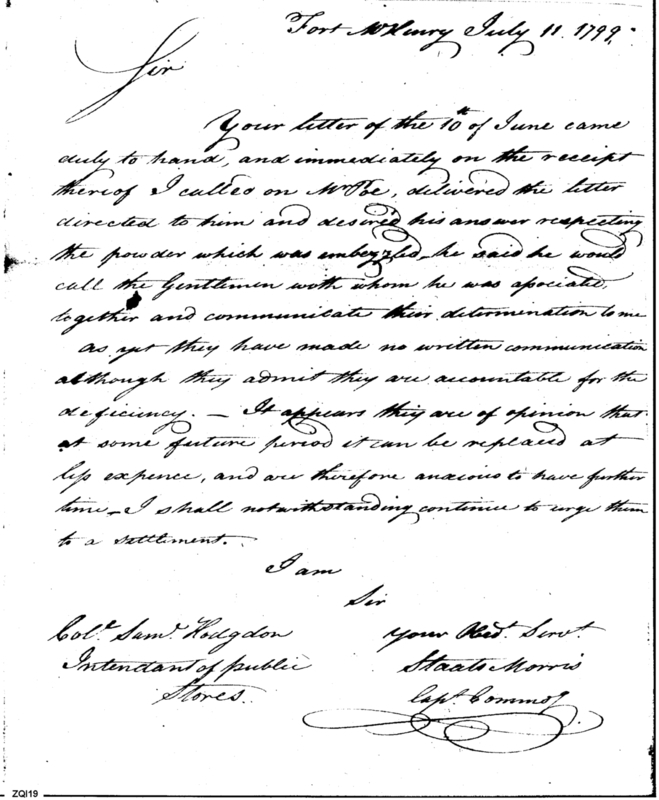 Fort McHenry July 11. 1799.
Sir
Your letter of the 10th of June came
duly to hand, and immediately on the receipt
thereof I called on Mr Poe, delivered the letter
directed to him and desired his answer respecting
the powder which was embezzled_ he said he would
call the Gentlemen with whom he was associated,
together and communicate their determenation to me
as yet they have made no written communication
although they admit they are accountable for the
deficiency. — It appears they are of opinion that
at some future period it can be replaced at
less expence, and are therefore anxious to have further
time_ I shall notwithstanding continue to urge them
to a settlement.
I am
Sir
Your Obedt. Servt.
Staats Morris
Capt. Commdg.
Colo. Saml. Hodgdon
Intendant of public
Stores.
ZQI19